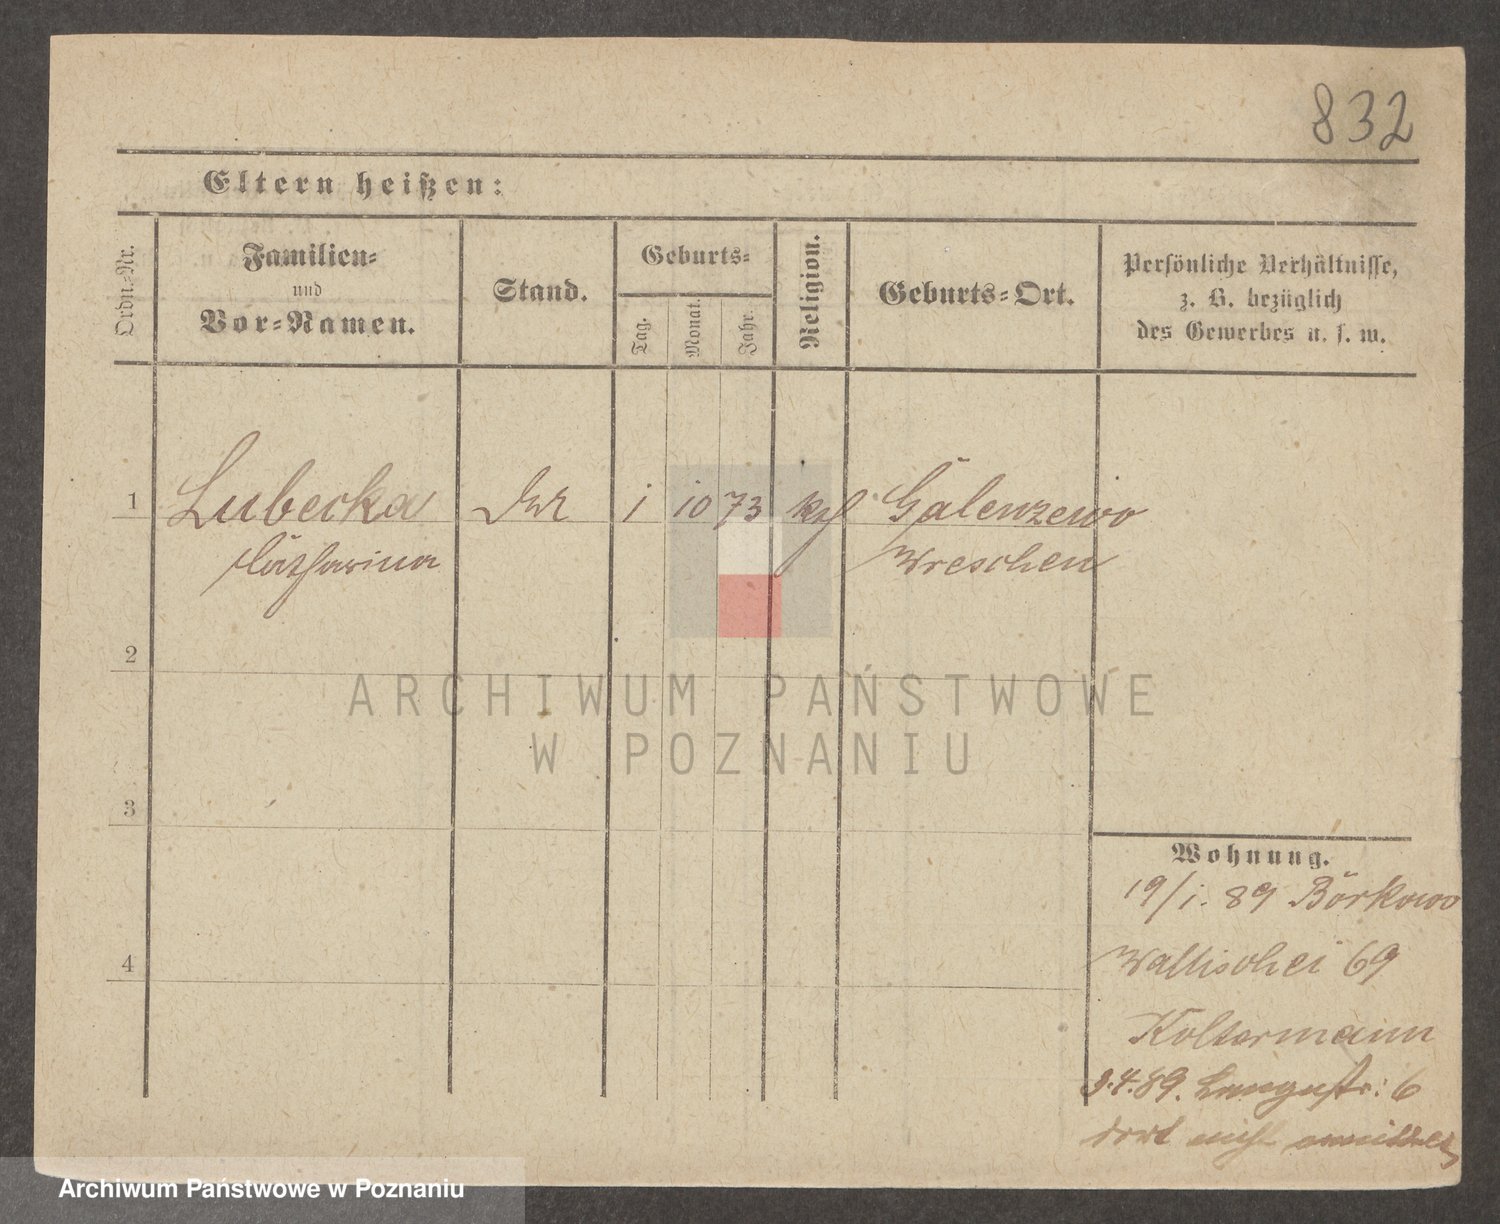 832
Eltern heißen:
Ordn.-Nr.
Familien-
und
Vor-Namen.
Stand.
Geburts-
Tag.
Monat.
Jahr.
Religion.
Geburts-Ort.
Persönliche Verhältnisse,
z. B. bezüglich
des Gewerbes u. s. w.
1 Lubecka 1 10 73 kth Galenzewo
Catharina Wreschen
2
3
4
Wohnung.
19/1. 89 Borkowo
Wallischei 69
Koltermann
3.4.89. Langestr: 6
dort nicht ermittelt
ARCHIWUM PAŃSTWOWE
W POZNANIU
Archiwum Państwowe w Poznaniu